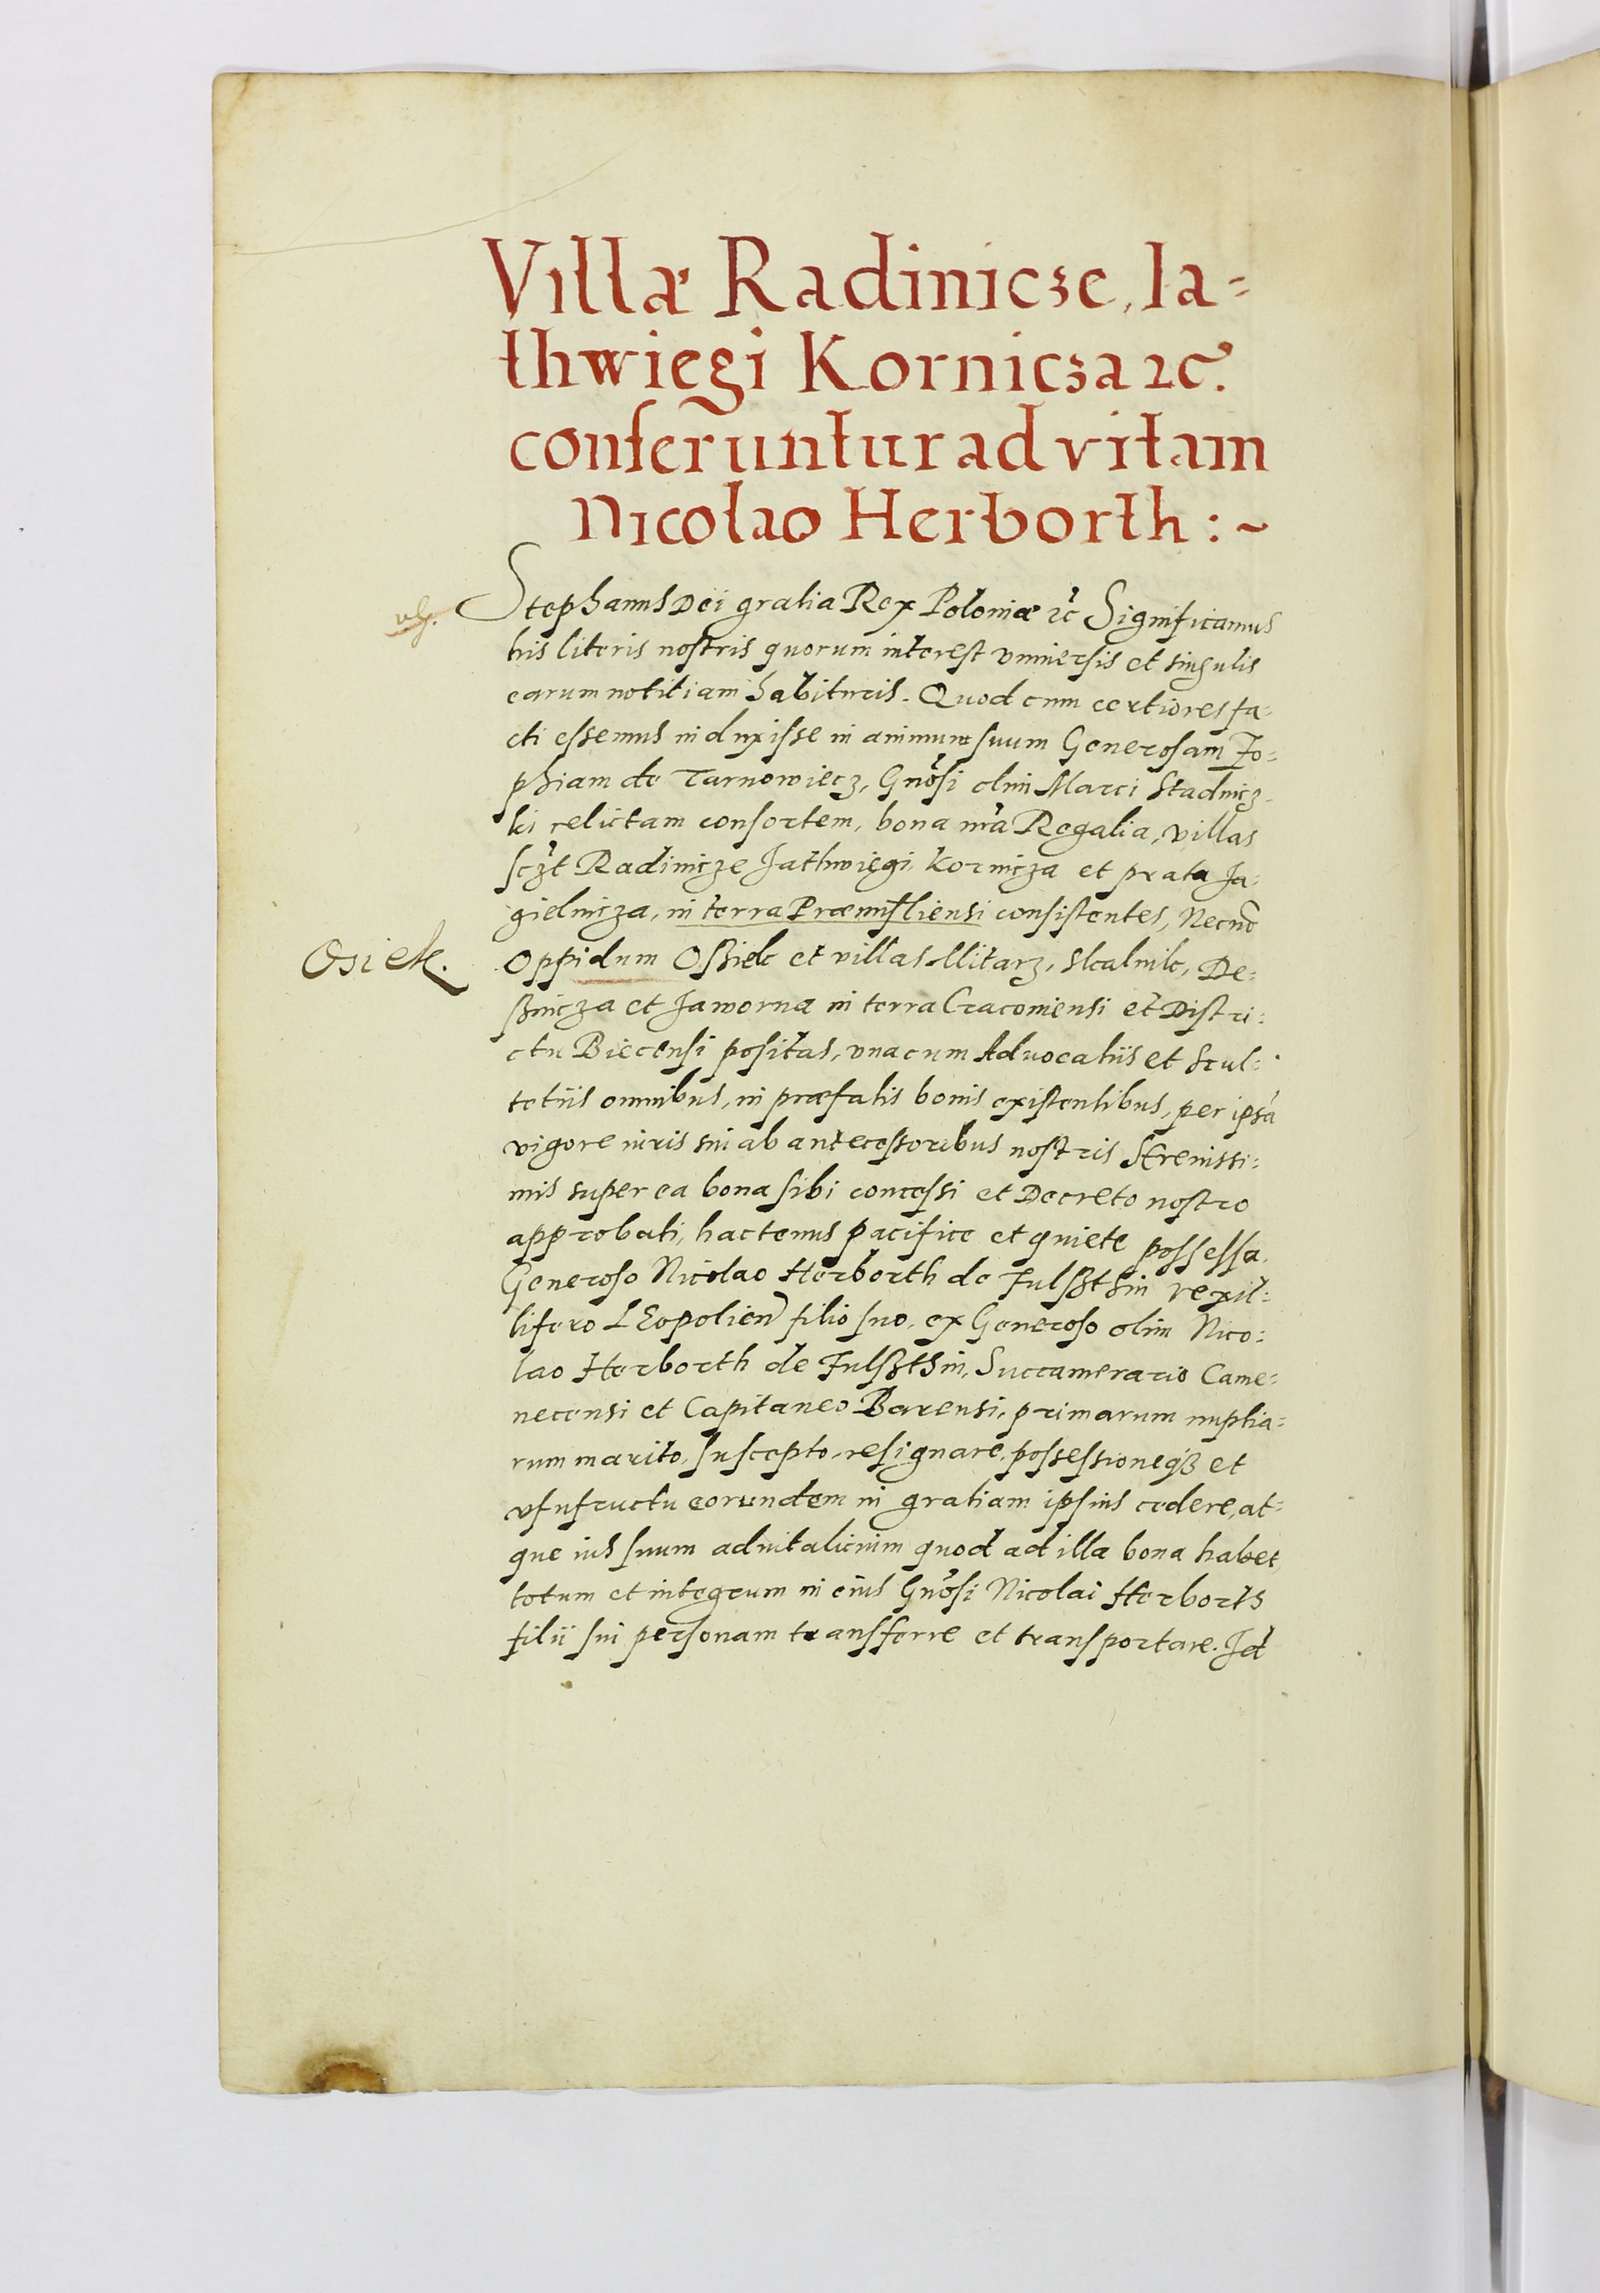 Villæ Radinicze, Ia=
thwięgi Kornicza ꝛc.
conferuntur ad vitam
Nicolao Herborth :~
Stephanus Dei gratia Rex Poloniæ ꝛc Significamus
his literis nostris quorum interest vniuersis et singulis
earum notitiam habituris. Quod cum certiores fa=
cti essemus induxisse in animum suum Generosam Zo=
phiam de Tarnowiecz, Gnosi olim Marci Stadnicz=
ki relictam consortem, bona nra Regalia, villas
sczt Radinicze Jathwięgi, Kornicza et prata Ja=
gielnicza, in terra Præmisliensi consistentes, Necno
Osiek.
Oppidum Oßiek et villas Mitarz, Skalnik, De=
ßnicza et Jaworna in terra Cracouiensi et Distri=
ctu Biecensi positas, vna cum Aduocatiis et Scul=
tetiis omnibus, in præfatis bonis existentibus, per ipsa
vigore iuris sui ab antecessoribus nostris Srenissi=
mis super ea bona sibi concessi et Decreto nostro
approbati, hactenus pacifice et quiete possessa,
Generoso Nicolao Herborth de Fulßthin vexil=
lifero LEopolien filio suo, ex Generoso olim Nico=
lao Herborth de Fulßthin, Succamerario Came=
necensi et Capitaneo Barensi, primarum nuptia=
rum marito, suscepto, resignare, possessioneqȝ et
vsufructu eorundem in gratiam ipsius cedere, at=
que ius suum aduitalicium quod ad illa bona habet,
totum et integrum in eius Gnosi Nicolai Herborth
filii sui personam transferre et transportare. Id